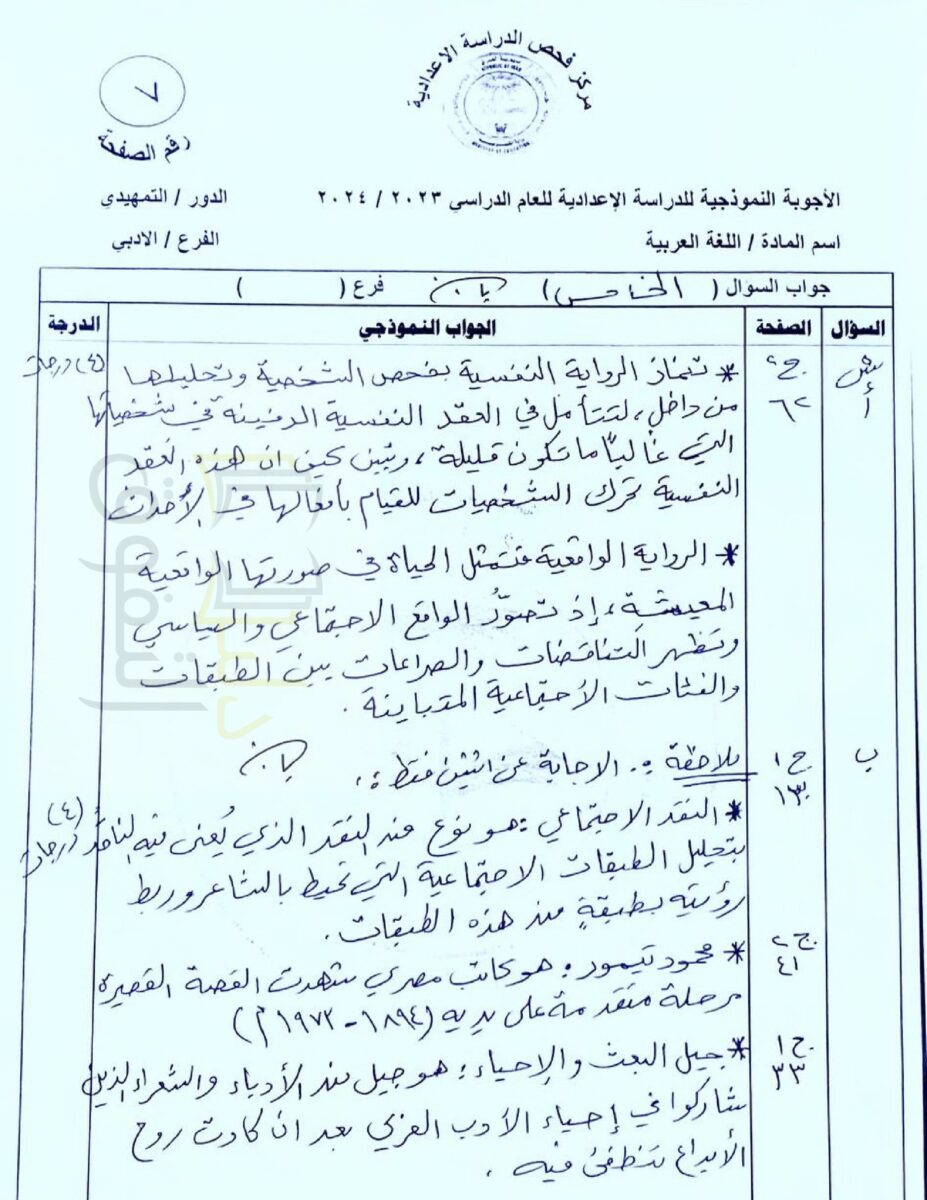 مركز فحص الدراسة الاعدادية
٧
رقم الصفحة
الأجوبة النموذجية للدراسة الإعدادية للعام الدراسي ٢٠٢٣ / ٢٠٢٤
الدور / التمهيدي
اسم المادة / اللغة العربية
الفرع / الادبي
جواب السؤال ( الخامس ) فرع ( )
السؤال الصفحة الجواب النموذجي الدرجة
أ ج٢ ٦٢ (٤) درجات
* تمتاز الرواية النفسية بفحص الشخصية وتحليلها
من داخل، لتتأمل في العقد النفسية الدفينة في شخصياتها
التي غالباً ما تكون قليلة، وتبين كيف ان هذه العقد
النفسية تحرك الشخصيات للقيام بأفعالها في الأحداث
* الرواية الواقعية فتمثل الحياة في صورتها الواقعية
المعيشة، إذ تصوّر الواقع الاجتماعي والسياسي
وتظهر التناقضات والصراعات بين الطبقات
والفئات الأجتماعية المتباينة.
ب ج١ ١٣ ملاحظة :. الاجابة عن اثنين فقط :.
(٤) درجات
* النقد الاجتماعي : هو نوع من النقد الذي يُعنى فيه الناقد
بتحليل الطبقات الاجتماعية التي تحيط بالشاعر وربط
رؤيته بطبقةٍ من هذه الطبقات.
ج٢ ٤١ * محمود تيمور : هو كاتب مصري شهدت القصة القصيرة
مرحلة متقدمة على يديه (١٨٩٤ - ١٩٧٣م)
ج١ ٣٣ * جيل البعث والإحياء : هو جيل من الأدباء والشعراء الذين
شاركوا في إحياء الأدب العربي بعد ان كادت روح
الأبداع تنطفئ فيه.
التفوق